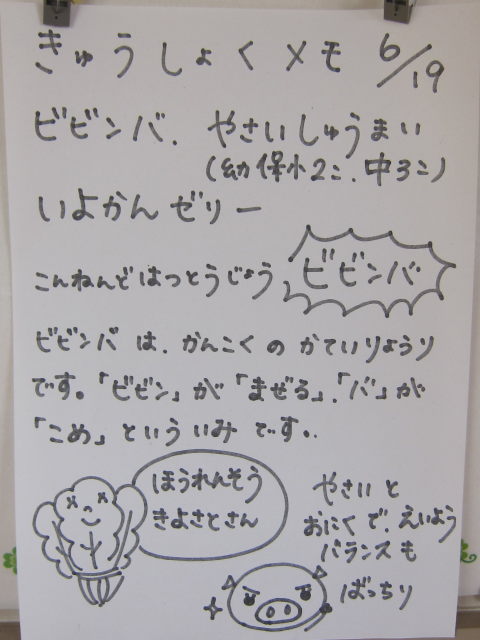 きゅうしょくメモ 6/19
ビビンバ、やさいしゅうまい
(幼保小2コ、中3コ)
いよかんゼリー
こんねんどはつとうじょう ビビンバ
ビビンバは、かんこくのかていりょうり
です。「ビビン」が「まぜる」、「バ」が
「こめ」といういみです。
ほうれんそう
きよさとさん
やさいと
おにくで、えいよう
バランスも
ばっちり